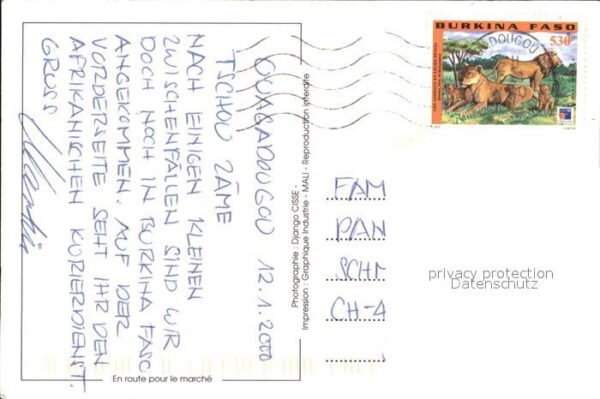 OUAGADOUGOU 12.1.2000
TSCHOU ZÄME
NACH EINIGEN KLEINEN
ZWISCHENFÄLLEN SIND WIR
DOCH NOCH IN BURKINA FASO
ANGEKOMMEN. AUF DER
VORDERSEITE SEHT IHR DEN
AFRIKANISCHEN KURIERDIENST.
GRUSS
En route pour le marché
Photographie : Django CISSE -
Impression : Graphique Industrie - MALI - Reproduction Interdite
BURKINA FASO
530F
DOUGOU
FAM
PAN
SCHM
CH-4
privacy protection
Datenschutz